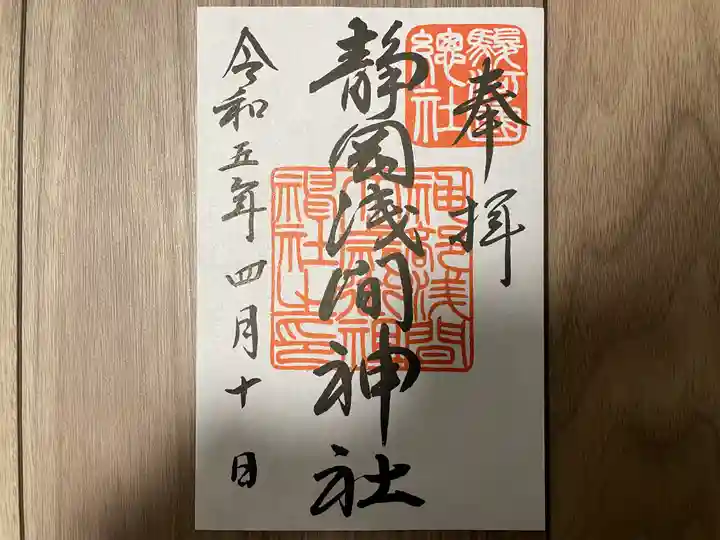 奉拝
駿河國
總社
静岡浅間神社
神部浅間
大歳御祖神
社之印
令和五年四月十日